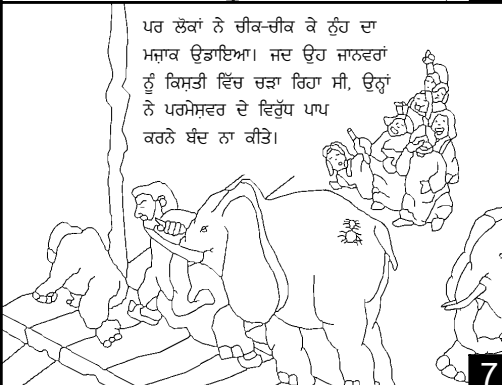 ਪਰ ਲੋਕਾਂ ਨੇ ਚੀਕ-ਚੀਕ ਕੇ ਨੂੰਹ ਦਾ
ਮਜ਼ਾਕ ਉਡਾਇਆ। ਜਦ ਉਹ ਜਾਨਵਰਾਂ
ਨੂੰ ਕਿਸ਼ਤੀ ਵਿੱਚ ਚੜਾ ਰਿਹਾ ਸੀ, ਉਨ੍ਹਾਂ
ਨੇ ਪਰਮੇਸ਼ਵਰ ਦੇ ਵਿਰੁੱਧ ਪਾਪ
ਕਰਨੇ ਬੰਦ ਨਾ ਕੀਤੇ।
7